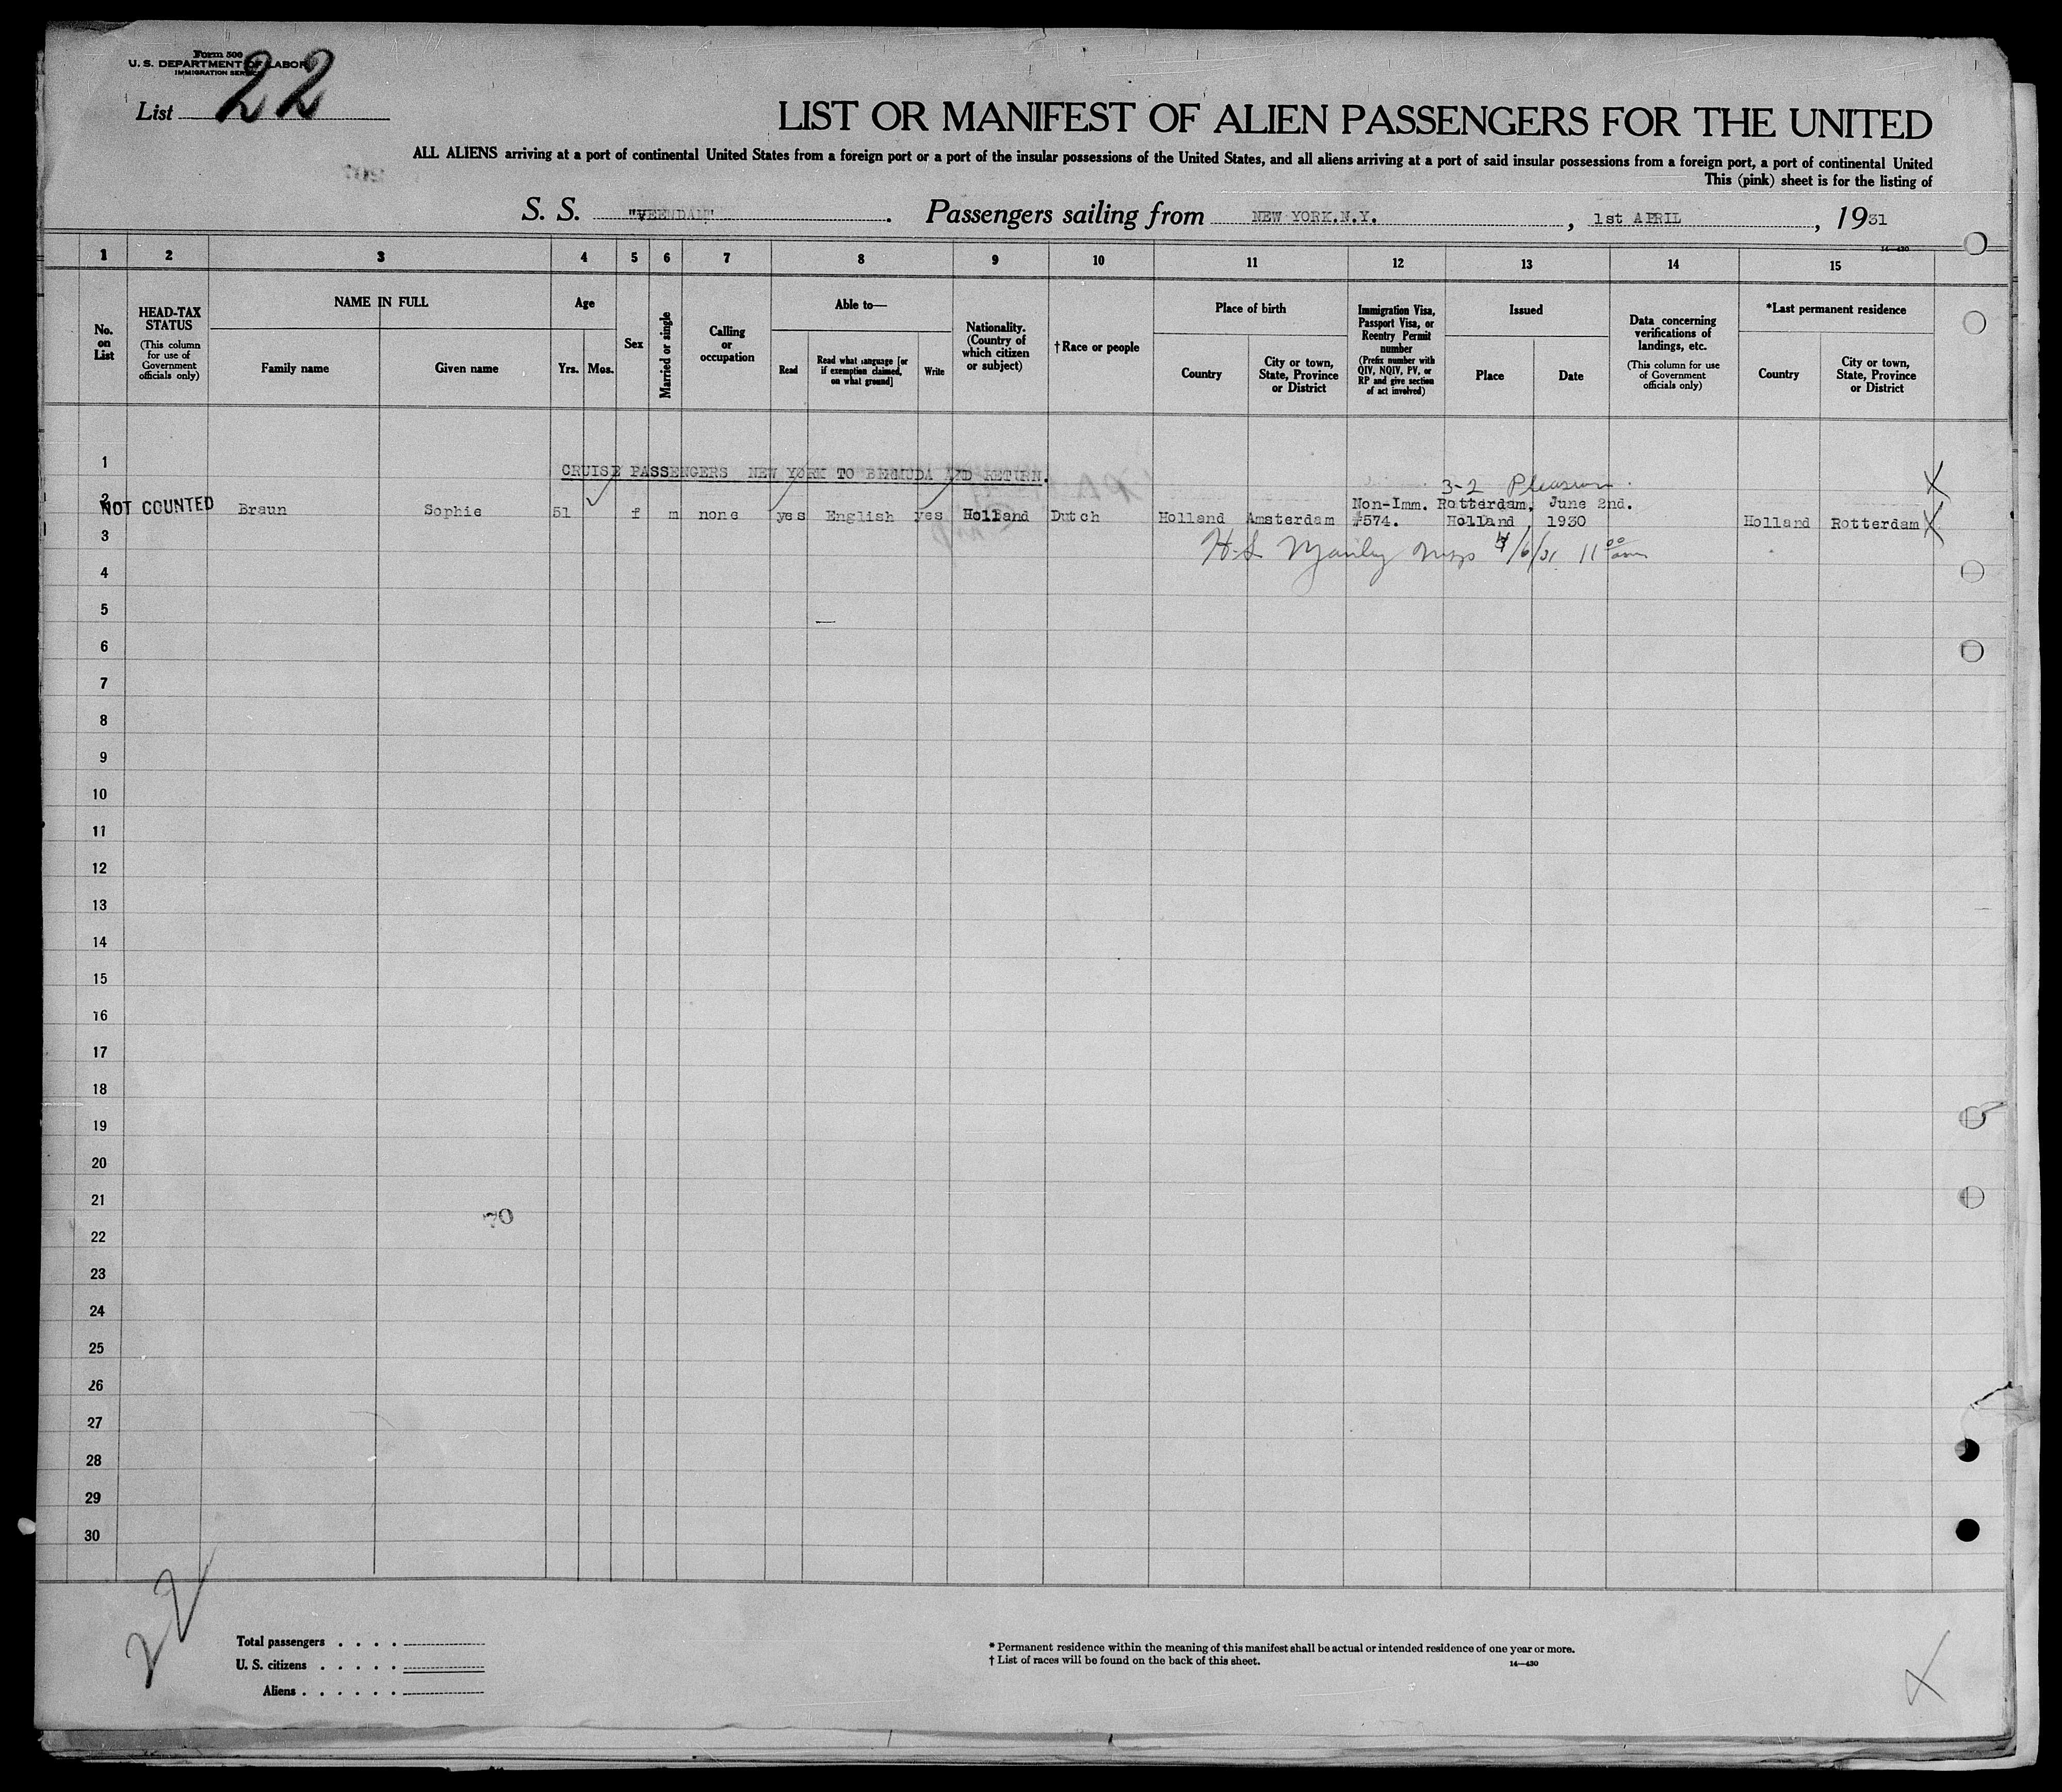 Form 500
U. S. DEPARTMENT OF LABOR
IMMIGRATION SERVICE
List 22
LIST OR MANIFEST OF ALIEN PASSENGERS FOR THE UNITED
ALL ALIENS arriving at a port of continental United States from a foreign port or a port of the insular possessions of the United States, and all aliens arriving at a port of said insular possessions from a foreign port, a port of continental United
This (pink) sheet is for the listing of
S. S. "VEENDAM". Passengers sailing from NEW YORK.N.Y., 1st APRIL, 1931
14—430
1 2 3 4 5 6 7 8 9 10 11 12 13 14 15
No. on List
HEAD-TAX STATUS
(This column for use of Government officials only)
NAME IN FULL
Family name
Given name
Age
Yrs. Mos.
Sex
Married or single
Calling or occupation
Able to—
Read
Read what language [or if exemption claimed, on what ground]
Write
Nationality. (Country of which citizen or subject)
†Race or people
Place of birth
Country
City or town, State, Province or District
Immigration Visa, Passport Visa, or Reentry Permit number
(Prefix number with QIV, NQIV, PV, or RP and give section of act involved)
Issued
Place
Date
Data concerning verifications of landings, etc.
(This column for use of Government officials only)
*Last permanent residence
Country
City or town, State, Province or District
1
CRUISE PASSENGERS NEW YORK TO BERMUDA AND RETURN.
3-2 Pleasure. X
2
NOT COUNTED Braun Sophie 51 f m none yes English yes Holland Dutch Holland Amsterdam Non-Imm. #574. Rotterdam, Holland, June 2nd. 1930 Holland Rotterdam X
3
4/6/31 11 00 am
4
5
6
7
8
9
10
11
12
13
14
15
16
17
18
19
20
21
70
22
23
24
25
26
27
28
29
30
22
Total passengers
U. S. citizens
Aliens
* Permanent residence within the meaning of this manifest shall be actual or intended residence of one year or more.
† List of races will be found on the back of this sheet.
14—430
X